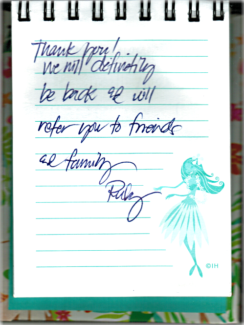 Thank you!
We will definitely
be back and will
refer you to friends
and family
Ruby
©JH